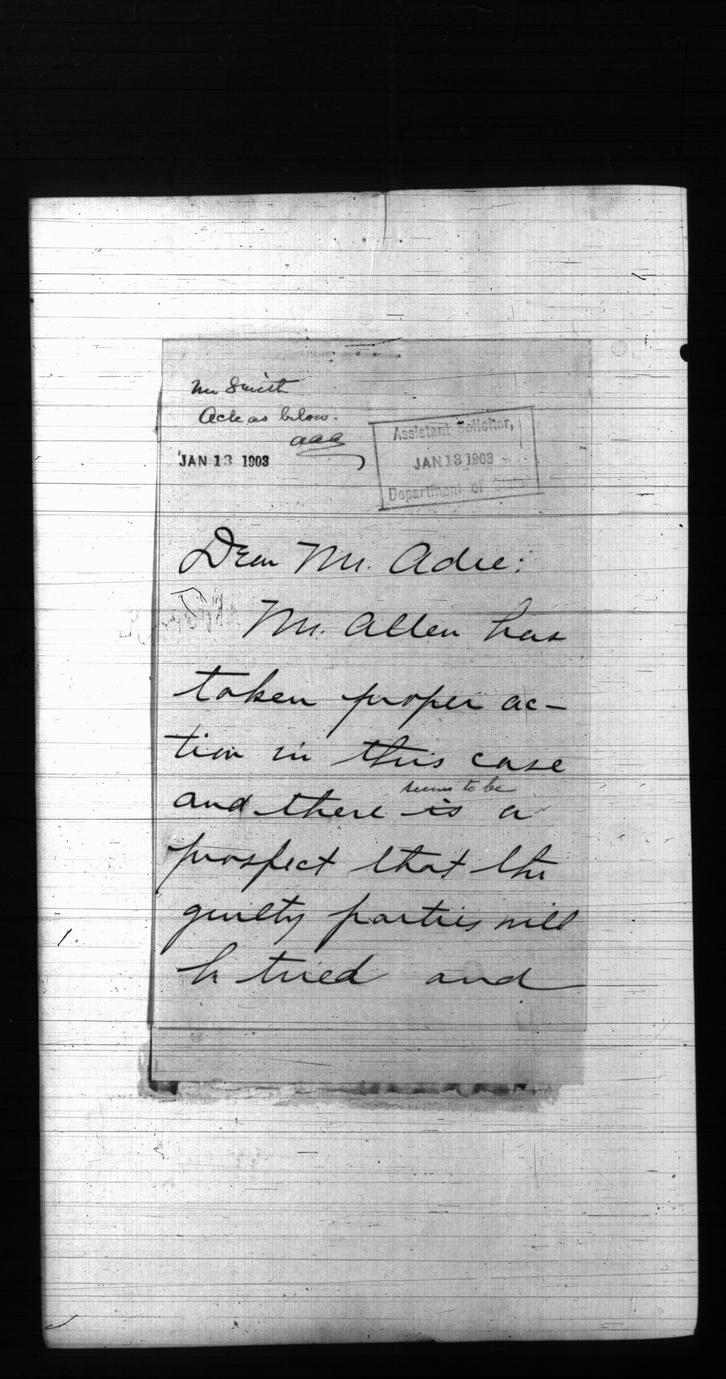 Mr Smith
Ack as below.
aaa
JAN 13 1903
Assistant Solicitor,
JAN 13 1903
Department of State
Dear Mr. Adee:
Mr. Allen has
taken proper ac-
tion in this case
seems to be
and there is a
prospect that the
guilty parties will
be tried and